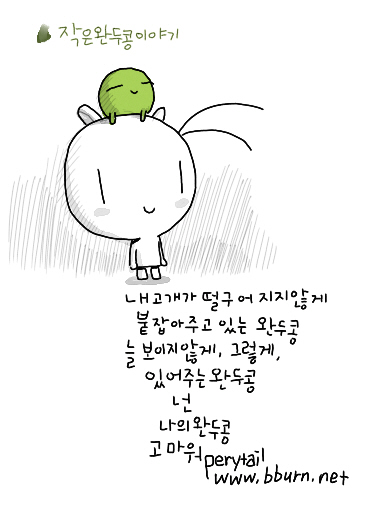 작은완두콩이야기
내고개가 떨구어 지지않게
붙잡아주고 있는 완두콩
늘 보이지않게, 그렇게,
있어주는완두콩
넌
나의완두콩
고마워
perytail
www.bburn.net